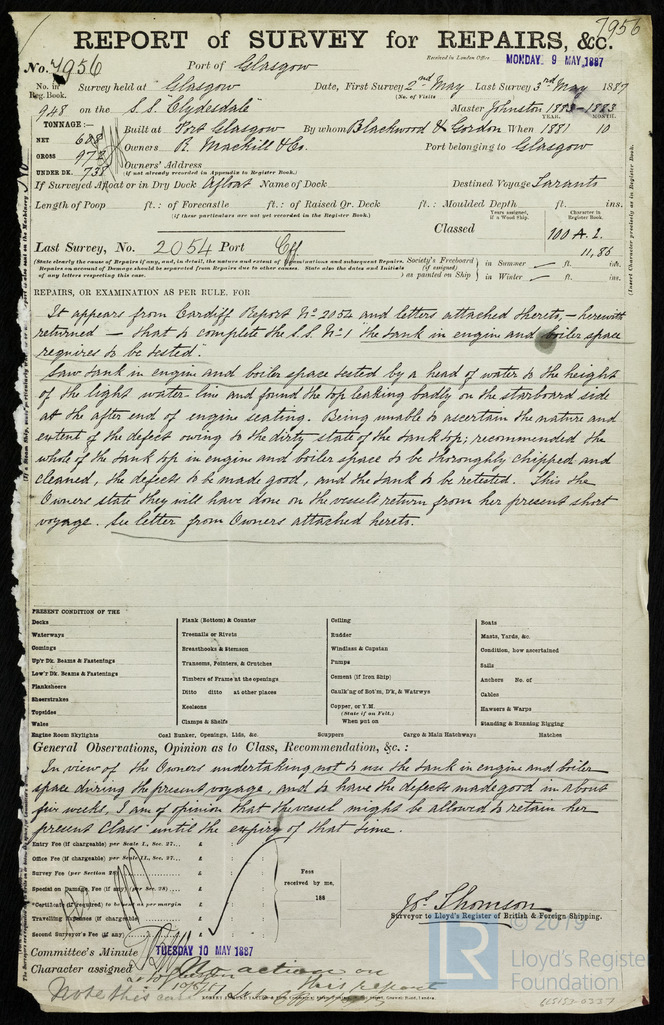 7956
REPORT of SURVEY for REPAIRS, &c.
No. 7956 Port of Glasgow Received in London Office MONDAY. 9 MAY, 1887
No. in Reg. Book. Survey held at Glasgow Date, First Survey 2nd May Last Survey 3rd May 1887
(No. of Visits
948 on the S.S. "Clydesdale" Master Johnston 1883-1883
TONNAGE:— YEAR. MONTH.
NET 608 Built at Port Glasgow By whom Blackwood & Gordon When 1881 10
GROSS 972 Owners R. Mackill & Co. Port belonging to Glasgow
UNDER DK. 738 Owners' Address
(if not already recorded in Appendix to Register Book.)
If Surveyed Afloat or in Dry Dock Afloat Name of Dock Destined Voyage
Length of Poop ft.: of Forecastle ft.: of Raised Qr. Deck ft.: Moulded Depth ft. ins.
(if these particulars are not yet recorded in the Register Book.)
Years assigned, if a Wood Ship. Character in Register Book.
Classed 100 A. 1.
11,86
Last Survey, No. 2054 Port Cff.
(State clearly the cause of Repairs if any, and, in detail, the nature and extent of Examinations and subsequent Repairs.
Repairs on account of Damage should be separated from Repairs due to other causes. State also the dates and Initials
of any letters respecting this case.
Society's Freeboard (if assigned) as painted on Ship } in Summer — ft. ins.
in Winter — ft. ins.
REPAIRS, OR EXAMINATION AS PER RULE. FOR
It appears from Cardiff Report No. 2054 and letters attached thereto, — herewith
returned — that to complete the S.S. No. 1 "the tank in engine and boiler space
requires to be tested".
Saw tank in engine and boiler space tested by a head of water to the height
of the light water-line and found the top leaking badly on the starboard side
at the after end of engine seating. Being unable to ascertain the nature and
extent of the defect owing to the dirty state of the tank top; recommended the
whole of the tank top in engine and boiler space to be thoroughly chipped and
cleaned, the defects to be made good, and the tank to be retested. This the
Owners state they will have done on the vessel's return from her present short
voyage. See letter from Owners attached hereto.
PRESENT CONDITION OF THE
Decks Plank (Bottom) & Counter Ceiling Boats
Waterways Treenails or Rivets Rudder Masts, Yards, &c.
Comings Breasthooks & Stemson Windlass & Capstan Condition, how ascertained
Up'r Dk. Beams & Fastenings Transoms, Pointers, & Crutches Pumps Sails
Low'r Dk. Beams & Fastenings Timbers of Frame at the openings Cement (if Iron Ship) Anchors No. of
Planksheers Ditto ditto at other places Caulk'ng of Bot'm, D'k, & Watrwys Cables
Sheerstrakes Keelsons Copper, or Y.M. Hawsers & Warps
Topsides (State if on Felt.)
Wales Clamps & Shelfs When put on Standing & Running Rigging
Engine Room Skylights Coal Bunker, Openings, Lids, &c. Scuppers Cargo & Main Hatchways Hatches
General Observations, Opinion as to Class, Recommendation, &c.:
In view of the Owners undertaking not to use the tank in engine and boiler
space during the present voyage, and to have the defects made good in about
four weeks, I am of opinion that the vessel might be allowed to retain her
present Class until the expiry of that time.
Entry Fee (if chargeable) per Scale I., Sec. 27... £
Office Fee (if chargeable) per Scale II., Sec. 27... £
Survey Fee (per Section 28) £
Special on Damage Fee (if any) (per Sec. 28)... £
*Certificate (if required) to be sent as per margin
Travelling Expenses (if chargeable) £
Second Surveyor's Fee (if any) £
Fees received by me, 188
Jos. Thomson
Surveyor to Lloyd's Register of British & Foreign Shipping.
Committee's Minute TUESDAY 10 MAY 1887
Character assigned No action on
this report
Note this case
© 2019
LR
Lloyd's Register
Foundation